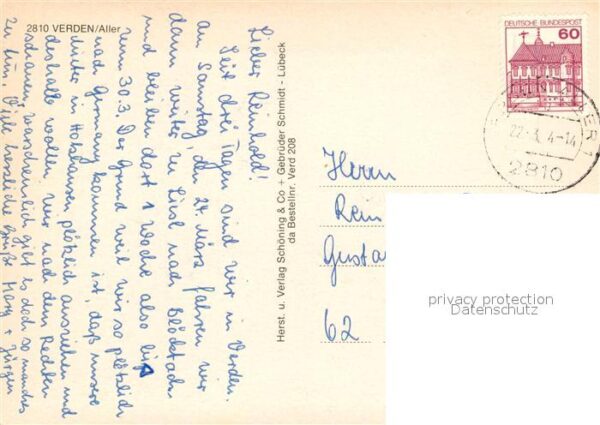 2810 VERDEN/Aller
Lieber Reinhold!
Seit drei Tagen sind wir in Verden.
Am Samstag, den 24. März fahren wir
dann weiter zu Lisl nach
und bleiben dort 1 Woche also bis
zum 30.3. Der Grund weil wir so plötzlich
nach Germany kommen ist, daß unsere
Mieter in plötzlich ausziehen und
deshalb wollen wir nach dem Rechten
schauen, warscheinlich gibt es doch so manches
zu tun. Viele herzliche Grüße Mary + Jürgen
Herst. u. Verlag Schöning & Co + Gebrüder Schmidt - Lübeck
da Bestellnr. Verd 208
DEUTSCHE BUNDESPOST
60
2810
Herrn
Rein
Gusta
62
privacy protection
Datenschutz